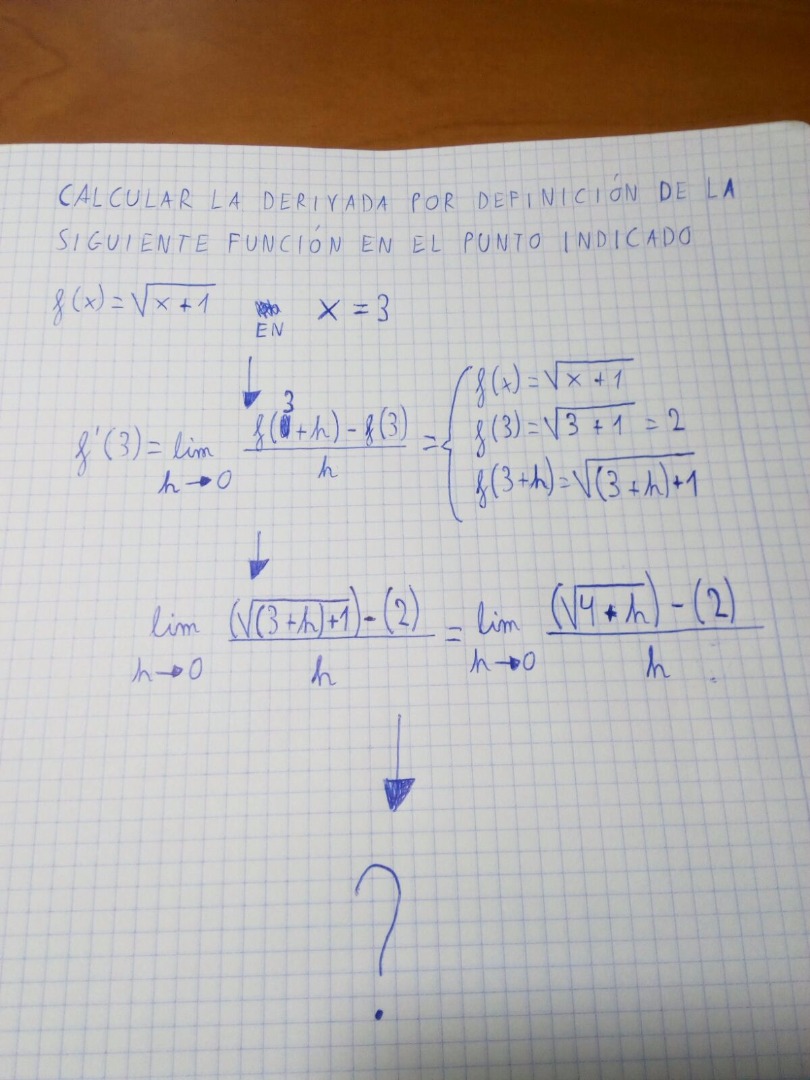 CALCULAR LA DERIVADA POR DEFINICIÓN DE LA
SIGUIENTE FUNCIÓN EN EL PUNTO INDICADO
f(x)=√(x+1) EN x=3
f'(3)=lim h→0 (f(3+h)-f(3))/h = { f(x)=√(x+1)
f(3)=√(3+1) =2
f(3+h)=√((3+h)+1)
lim h→0 ((√((3+h)+1))-(2))/h = lim h→0 ((√(4+h))-(2))/h
?